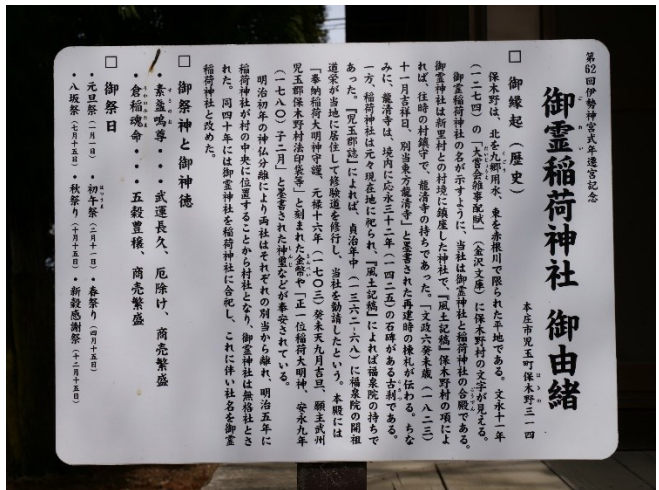 第62回伊勢神宮式年遷宮記念
御霊稲荷神社 御由緒
ごりょう
本庄市児玉町保木野三一四
ほきの
□ 御縁起(歴史)
保木野は、北を九郷用水、東を赤根川で限られた平地である。文永十一年
(一二七四)の「大嘗会雑事配賦」(金沢文庫)に保木野村の文字が見える。
御霊稲荷神社の名が示すように、当社は御霊神社と稲荷神社の合殿である。
御霊神社は新里村との村境に鎮座した神社で、『風土記稿』保木野村の項によ
れば、往時の村鎮守で、龍清寺の持ちであった。「文政六癸未歳(一八二三)
十一月吉祥日、別当東方龍清寺」と墨書された再建時の棟札が伝わる。ちな
みに、龍清寺は、境内に応永三十二年(一四二五)の石碑がある古刹である。
一方、稲荷神社は元々現在地に祀られ、『風土記稿』によれば福泉院の持ちで
あった。『児玉郡誌』によれば、貞治年中(一三六二-六八)に福泉院の開祖
道栄が当地に居住して修験道を修行し、当社を勧請したという。本殿には
「奉納稲荷大明神守護、元禄十六年(一七〇三)癸未天九月吉旦、願主武州
児玉郡保木野村法印袋等」と刻まれた金幣や「正一位稲荷大明神、安永九年
(一七八〇)子二月」と墨書された神璽などが奉安されている。
明治初年の神仏分離により両社はそれぞれの別当から離れ、明治五年に
稲荷神社が村の中央に位置することから村社となり、御霊神社は無格社とさ
れた。同四十年には御霊神社を稲荷神社に合祀し、これに伴い社名を御霊
稲荷神社と改めた。
□ 御祭神と御神徳
・素盞嗚尊・・・武運長久、厄除け、商売繁盛
・倉稲魂命・・・五穀豊穣、商売繁盛
□ 御祭日
・元旦祭(一月一日)・初午祭(二月十一日)・春祭り(四月十五日)
・八坂祭(七月十五日)・秋祭り(十月十五日)・新穀感謝祭(十二月十五日)